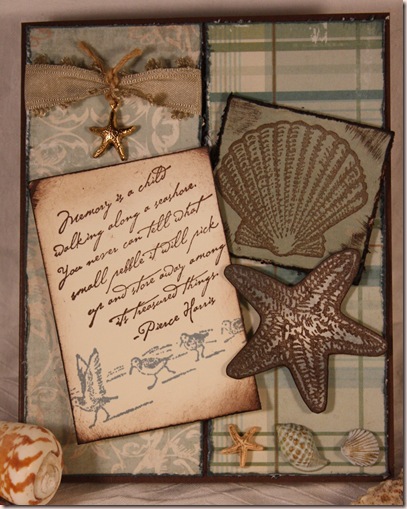 Memory is a child
walking along a seashore.
You never can tell what
small pebble it will pick
up and store away among
its treasured things.
-Pierce Harris